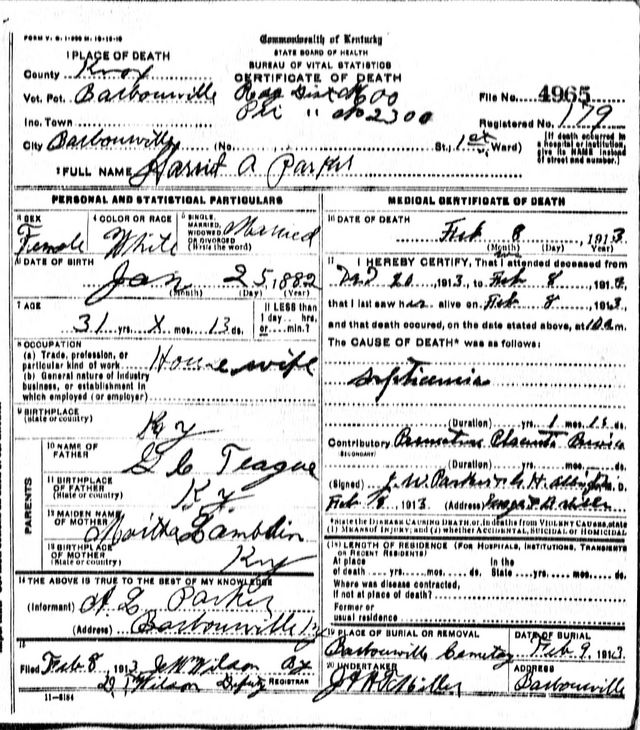 FORM V. S. 1-
Commonwealth of Kentucky
STATE BOARD OF HEALTH
BUREAU OF VITAL STATISTICS
CERTIFICATE OF DEATH
1 PLACE OF DEATH
County Knox
Vot. Pct. Barbourville
Reg Dist No 600
File No. 4965
Inc. Town
Pri " No 2300
Registered No. 179
City Barbourville (No. St., 1st Ward)
[If death occurred in a hospital or institution, give its NAME instead of street and number.]
2 FULL NAME Harriet A Parker
PERSONAL AND STATISTICAL PARTICULARS
3 SEX Female
4 COLOR OR RACE White
5 SINGLE, MARRIED, WIDOWED OR DIVORCED (Write the word) Married
6 DATE OF BIRTH
Jan 25, 1882
(Month) (Day) (Year)
7 AGE
31 yrs. X mos. 13 ds.
If LESS than 1 day... hrs. or.... min.?
8 OCCUPATION
(a) Trade, profession, or particular kind of work House wife
(b) General nature of industry business, or establishment in which employed (or employer)
9 BIRTHPLACE
(State or country)
Ky
PARENTS
10 NAME OF FATHER
G C Teague
11 BIRTHPLACE OF FATHER
(State or country)
Ky.
12 MAIDEN NAME OF MOTHER
Martha Lambdin
13 BIRTHPLACE OF MOTHER
(State or country)
Ky
14 THE ABOVE IS TRUE TO THE BEST OF MY KNOWLEDGE
(Informant) A L Parker
(Address) Barbourville Ky
15
Filed Feb 8, 1913 Wilson
Wilson Deputy REGISTRAR
11-5184
MEDICAL CERTIFICATE OF DEATH
16 DATE OF DEATH
Feb 8, 1913
(Month) (Day) (Year)
17 I HEREBY CERTIFY, That I attended deceased from
20, 1913, to Feb 8, 1913,
that I last saw her alive on Feb 8, 1913,
and that death occured, on the date stated above, at m.
The CAUSE OF DEATH* was as follows:
Septicemia
(Duration) yrs. 1 mos. ds.
Contributory Premature Placenta
(SECONDARY)
(Duration) yrs. mos. ds.
(Signed) J. W. Parker M. D.
Feb 8, 1913 (Address)
*State the DISEASE CAUSING DEATH, or, in deaths from VIOLENT CAUSES, state (1) MEANS OF INJURY; and (2) whether ACCIDENTAL, SUICIDAL or HOMICIDAL
18 LENGTH OF RESIDENCE (FOR HOSPITALS, INSTITUTIONS, TRANSIENTS OR RECENT RESIDENTS)
At place of death yrs. mos. ds. In the State yrs. mos. ds.
Where was disease contracted, if not at place of death?
Former or usual residence
19 PLACE OF BURIAL OR REMOVAL
DATE OF BURIAL
Barbourville Cemetery Feb 9, 1913
20 UNDERTAKER
ADDRESS
Miller Barbourville